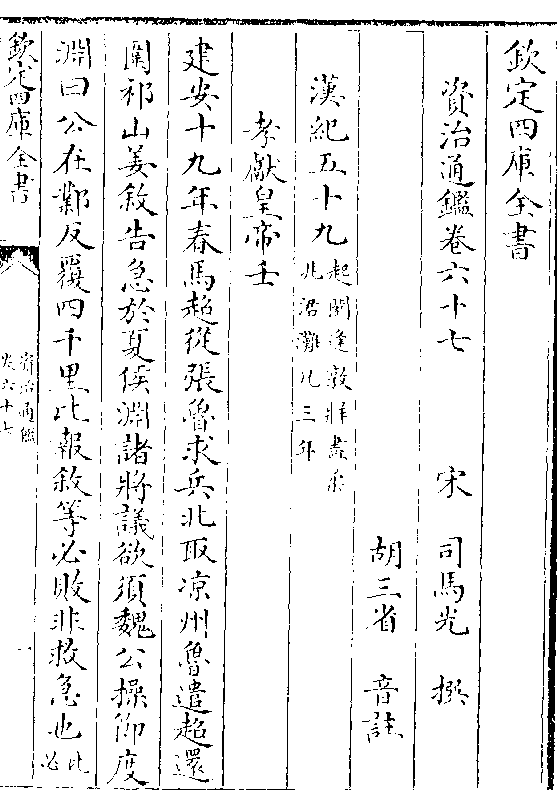 欽定四庫全書
資治通鑑卷六十七 宋 司馬光 撰
胡三省 音註
漢紀五十九 起閼逢敦牂盡柔
兆涒灘凡三年
孝獻皇帝壬
建安十九年春馬超從張魯求兵北取凉州魯遣超還
圍祁山姜敘告急於夏侯淵諸將議欲須魏公操節度
淵曰公在鄴反覆四千里比報敘等必敗非救急也 比
必
欽定四庫全書
資治通鑑
卷六十七
一